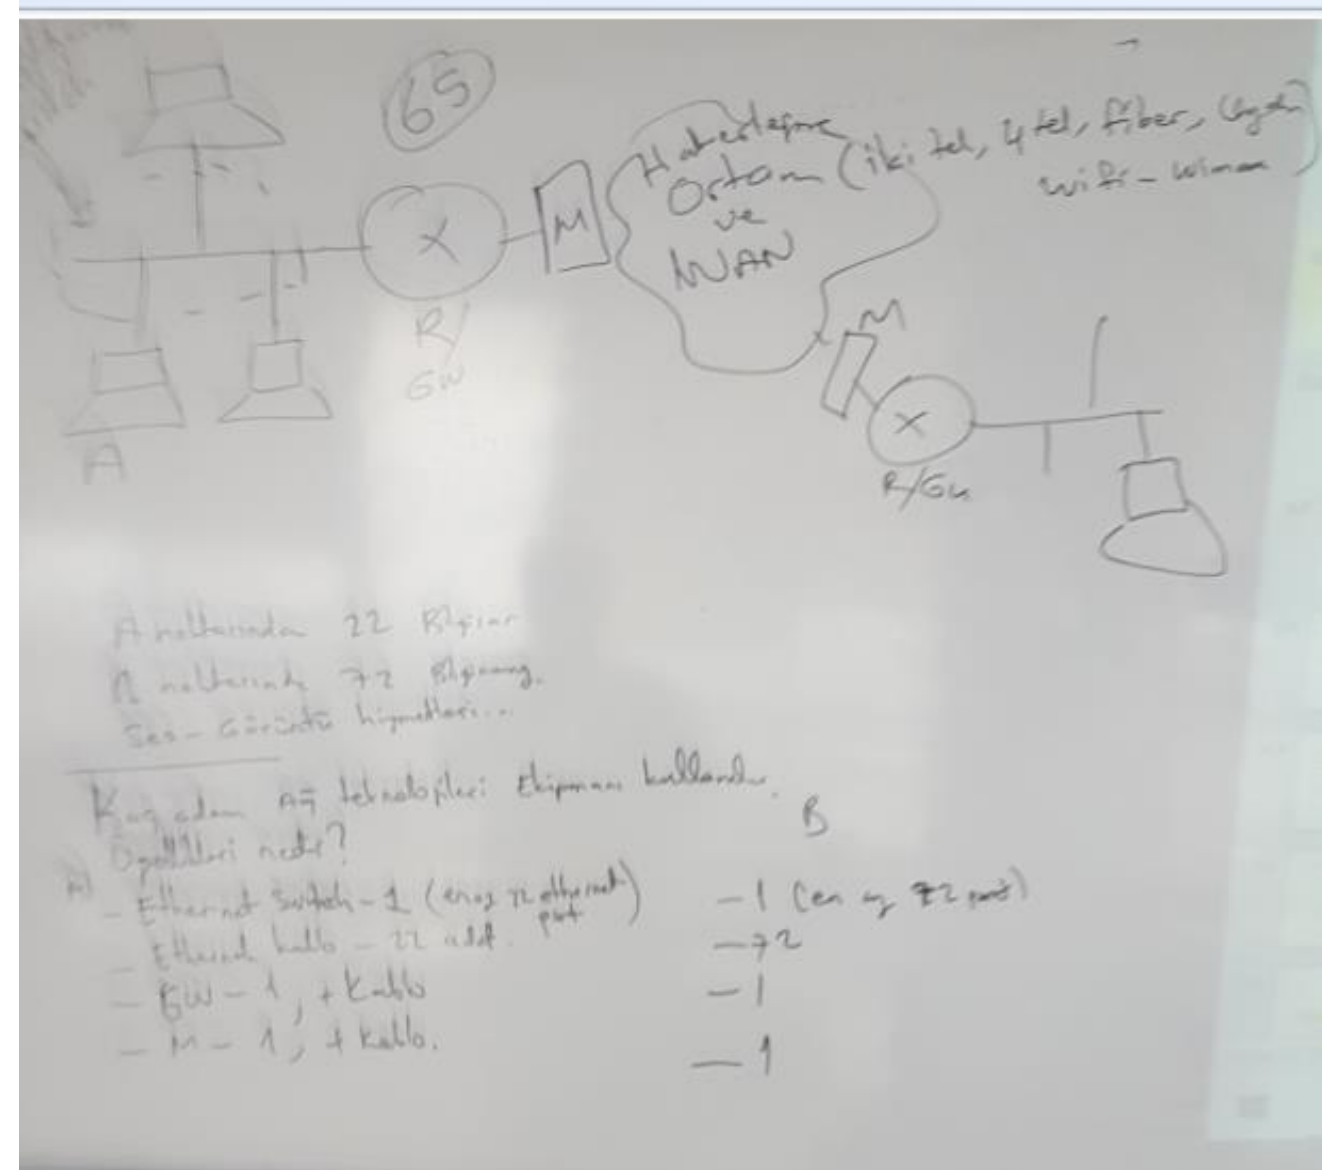 65
Haberleşme
Ortam (iki tel, 4 tel, fiber,
ve
wifi - wimax)
WAN
X
M
R/
GW
M
X
R/GW
A
A noktasında 22 Bilgisayar
noktasında 72 Bilgisayar
Ses - Görüntü hizmetleri...
Kaç adam Ağ teknolojileri Ekipmanı kullanılır.
Özellikleri nedir?
B
A)
- Ethernet Switch - 1 (en az 22 ethernet port)
- 1 (en az 72 port)
- Ethernet kablo - 22 adet.
- 72
- GW - 1, + Kablo
- 1
- M - 1, + Kablo.
- 1